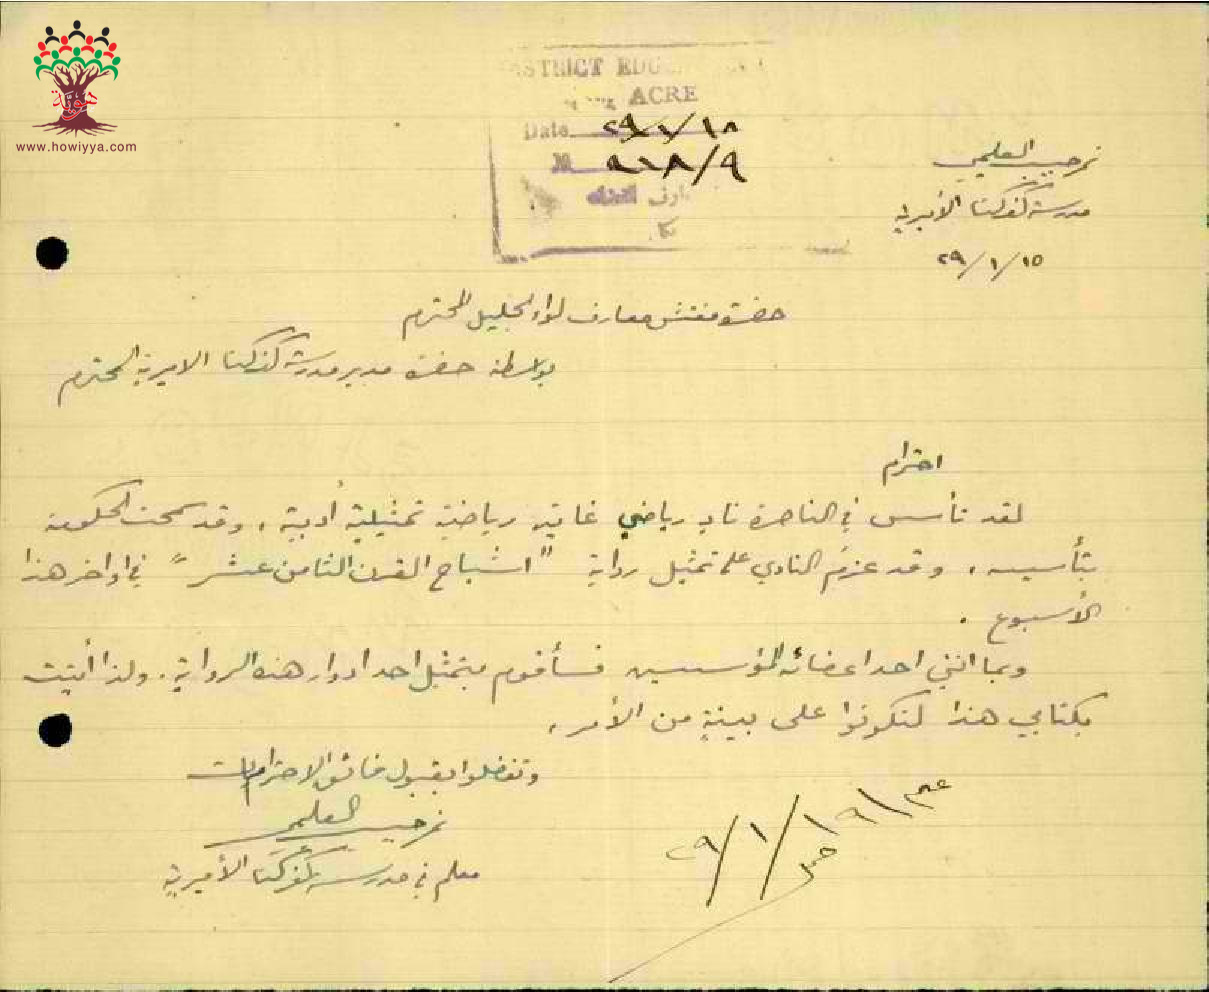 هوية
www.howiyya.com
DISTRICT EDUC
ACRE
Date ٢٩/١/١٨
N ٩١٨/٩
معارف
عكا
نرجيب العلمي
مدرسة كفركنا الأميرية
٢٩/١/١٥
حضرة مفتش معارف لواء الجليل المحترم
بواسطة حضرة مدير مدرسة كفركنا الاميرية المحترم
احترام
لقد تأسس في الناصرة ناد رياضي غايته رياضية تمثيلية أدبية . وقد سمحت الحكومة
بتأسيسه . وقد عزم النادي على تمثيل رواية " اشباح القرن الثامن عشر " في اواخر هذا
الأسبوع .
وبما انني احد اعضائه المؤسسين فسأقوم بتمثيل احد ادوار هذه الرواية . ولذا أتيت
بكتابي هذا لتكونوا على بينةٍ من الأمر .
وتفضلوا بقبول فائق الاحترامات
نرجيب العلمي
معلم في مدرسة كفركنا الأميرية
٢٩/١/١٩